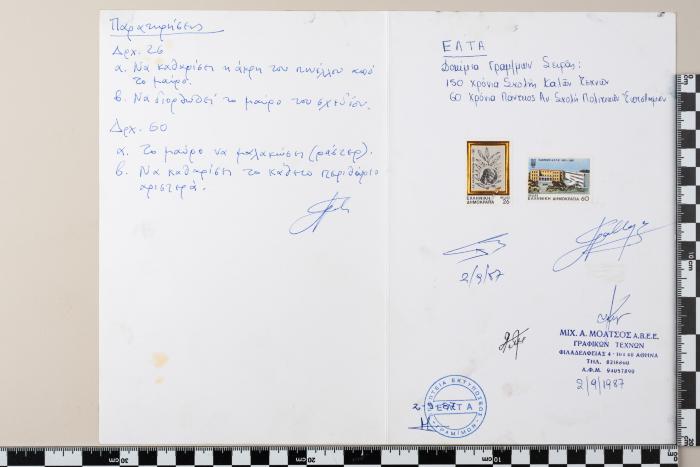 Παρατηρήσεις
Δρχ. 26
α. Να καθαρίσει η άκρη του πινέλλου από
το μαύρο.
β. Να διορθωθεί το μαύρο του σχεδίου.
Δρχ. 60
α. Το μαύρο να μαλακώσει (ράστερ).
β. Να καθαρίσει το κάθετο περιθώριο
αριστερά.
ΕΛΤΑ
Δοκίμια Γραμ/μων Σειράς:
150 χρόνια Σχολή Καλών Τεχνών
60 χρόνια Παντειος Αν. Σχολή Πολιτικών Επιστημών
ΕΛΛΗΝΙΚΗ ΔΗΜΟΚΡΑΤΙΑ 26
ΕΛΛΗΝΙΚΗ ΔΗΜΟΚΡΑΤΙΑ 60
2/9/87
ΜΙΧ. Α. ΜΟΑΤΣΟΣ Α.Β.Ε.Ε.
ΓΡΑΦΙΚΩΝ ΤΕΧΝΩΝ
ΦΙΛΑΔΕΛΦΕΙΑΣ 4 - ΑΘΗΝΑ
ΤΗΛ.
Α.Φ.Μ. 94057890
2/9/1987
ΕΚΤΥΠΩΣΕΩΣ
2-9-87
ΕΛΤΑ
ΓΡΑΜ/ΜΩΝ
30
20
10 cm
10 cm
20